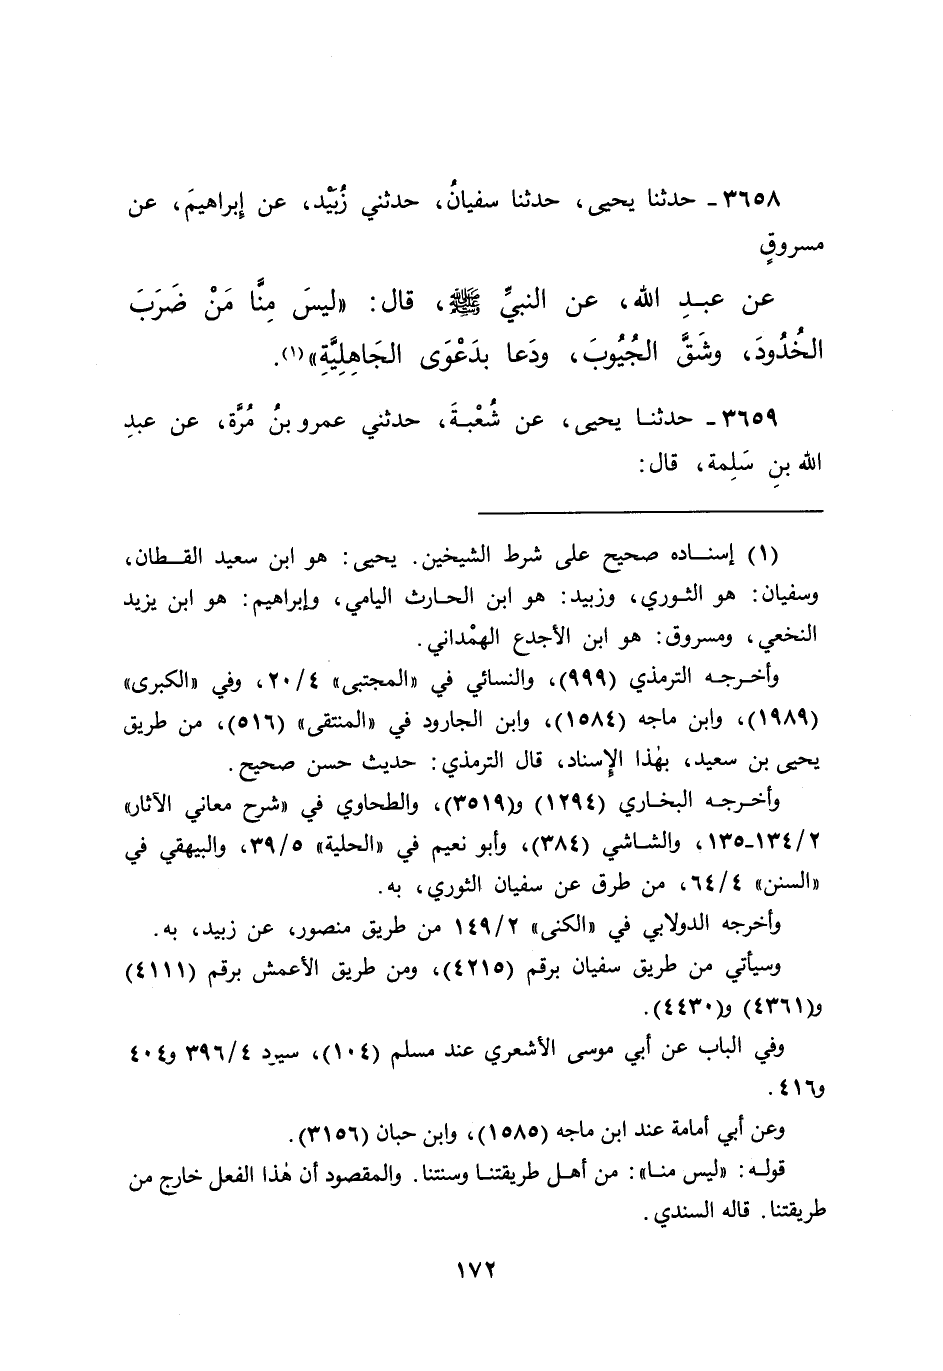 ٣٦٥٨ـ حدثنا يحيى، حدثنا سفيانُ، حدثني زُبَيْد، عن إبراهيمَ، عن
مسروقٍ
عن عبدِ الله، عن النبيِّ ﷺ، قال: «ليسَ مِنَّا مَنْ ضَرَبَ
الخُدُودَ، وشَقَّ الجُيُوبَ، ودَعا بدَعْوَى الجَاهِلِيَّةِ»(١).
٣٦٥٩ـ حدثنا يحيى، عن شُعْبةَ، حدثني عمرو بنُ مُرَّة، عن عبدِ
الله بنِ سَلِمة، قال:
(١) إسناده صحيح على شرط الشيخين. يحيى: هو ابن سعيد القطان،
وسفيان: هو الثوري، وزبيد: هو ابن الحارث اليامي، وإبراهيم: هو ابن يزيد
النخعي، ومسروق: هو ابن الأجدع الهمْداني.
وأخرجه الترمذي (٩٩٩)، والنسائي في «المجتبى» ٢٠/٤، وفي «الكبرى»
(١٩٨٩)، وابن ماجه (١٥٨٤)، وابن الجارود في «المنتقى» (٥١٦)، من طريق
يحيى بن سعيد، بهٰذا الإسناد، قال الترمذي: حديث حسن صحيح.
وأخرجه البخاري (١٢٩٤) و(٣٥١٩)، والطحاوي في «شرح معاني الآثار»
١٣٤/٢ـ١٣٥، والشاشي (٣٨٤)، وأبو نعيم في «الحلية» ٣٩/٥، والبيهقي في
«السنن» ٦٤/٤، من طرق عن سفيان الثوري، به.
وأخرجه الدولابي في «الكنى» ١٤٩/٢ من طريق منصور، عن زبيد، به.
وسيأتي من طريق سفيان برقم (٤٢١٥)، ومن طريق الأعمش برقم (٤١١١)
و(٤٣٦١) و(٤٤٣٠).
وفي الباب عن أبي موسى الأشعري عند مسلم (١٠٤)، سيرد ٣٩٦/٤ و٤٠٤
و٤١٦.
وعن أبي أمامة عند ابن ماجه (١٥٨٥)، وابن حبان (٣١٥٦).
قوله: «ليس منا»: من أهل طريقتنا وسنتنا. والمقصود أن هٰذا الفعل خارج من
طريقتنا. قاله السندي.
١٧٢